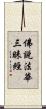 佛說法華
三昧經